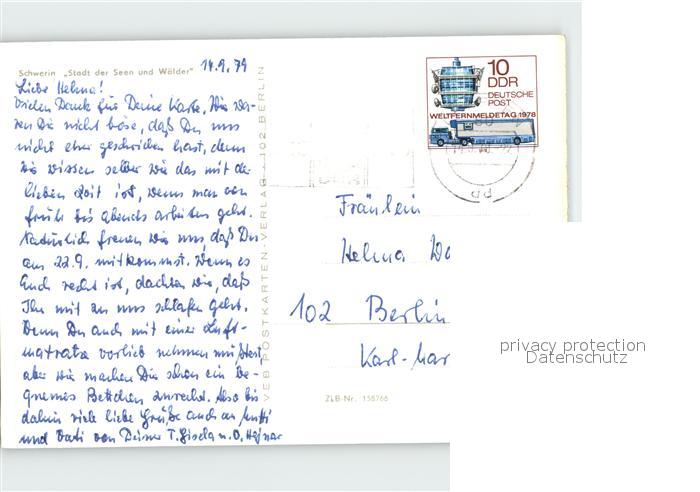 14.9.79
Schwerin „Stadt der Seen und Wälder"
Liebe Helma!
Vielen Dank für Deine Karte. Wir wa-
ren Dir nicht böse, daß Du uns
nicht eher geschrieben hast, denn
wir wissen selber wie das mit der
lieben Zeit ist, wenn man von
früh bis abends arbeiten geht.
Natürlich freuen wir uns, daß Du
am 22.9. mitkommst. Wenn es
Euch recht ist, dachten wir, daß
Ihr mit zu uns schlafen geht.
Wenn Du auch mit einer Luft-
matratze vorlieb nehmen mußtest
aber wir machen Dir schon ein be-
quemes Bettchen zurecht. Also bis
dahin viele liebe Grüße auch an Mutti
und Vati von Deiner T. Gisela u. O.
VEB POSTKARTEN-VERLAG · 102 BERLIN
10
DDR
DEUTSCHE
POST
WELTFERNMELDETAG 1978
Fräulein
Helma
102 Berlin
Karl-Mar
ZLB-Nr. 158766
privacy protection
Datenschutz